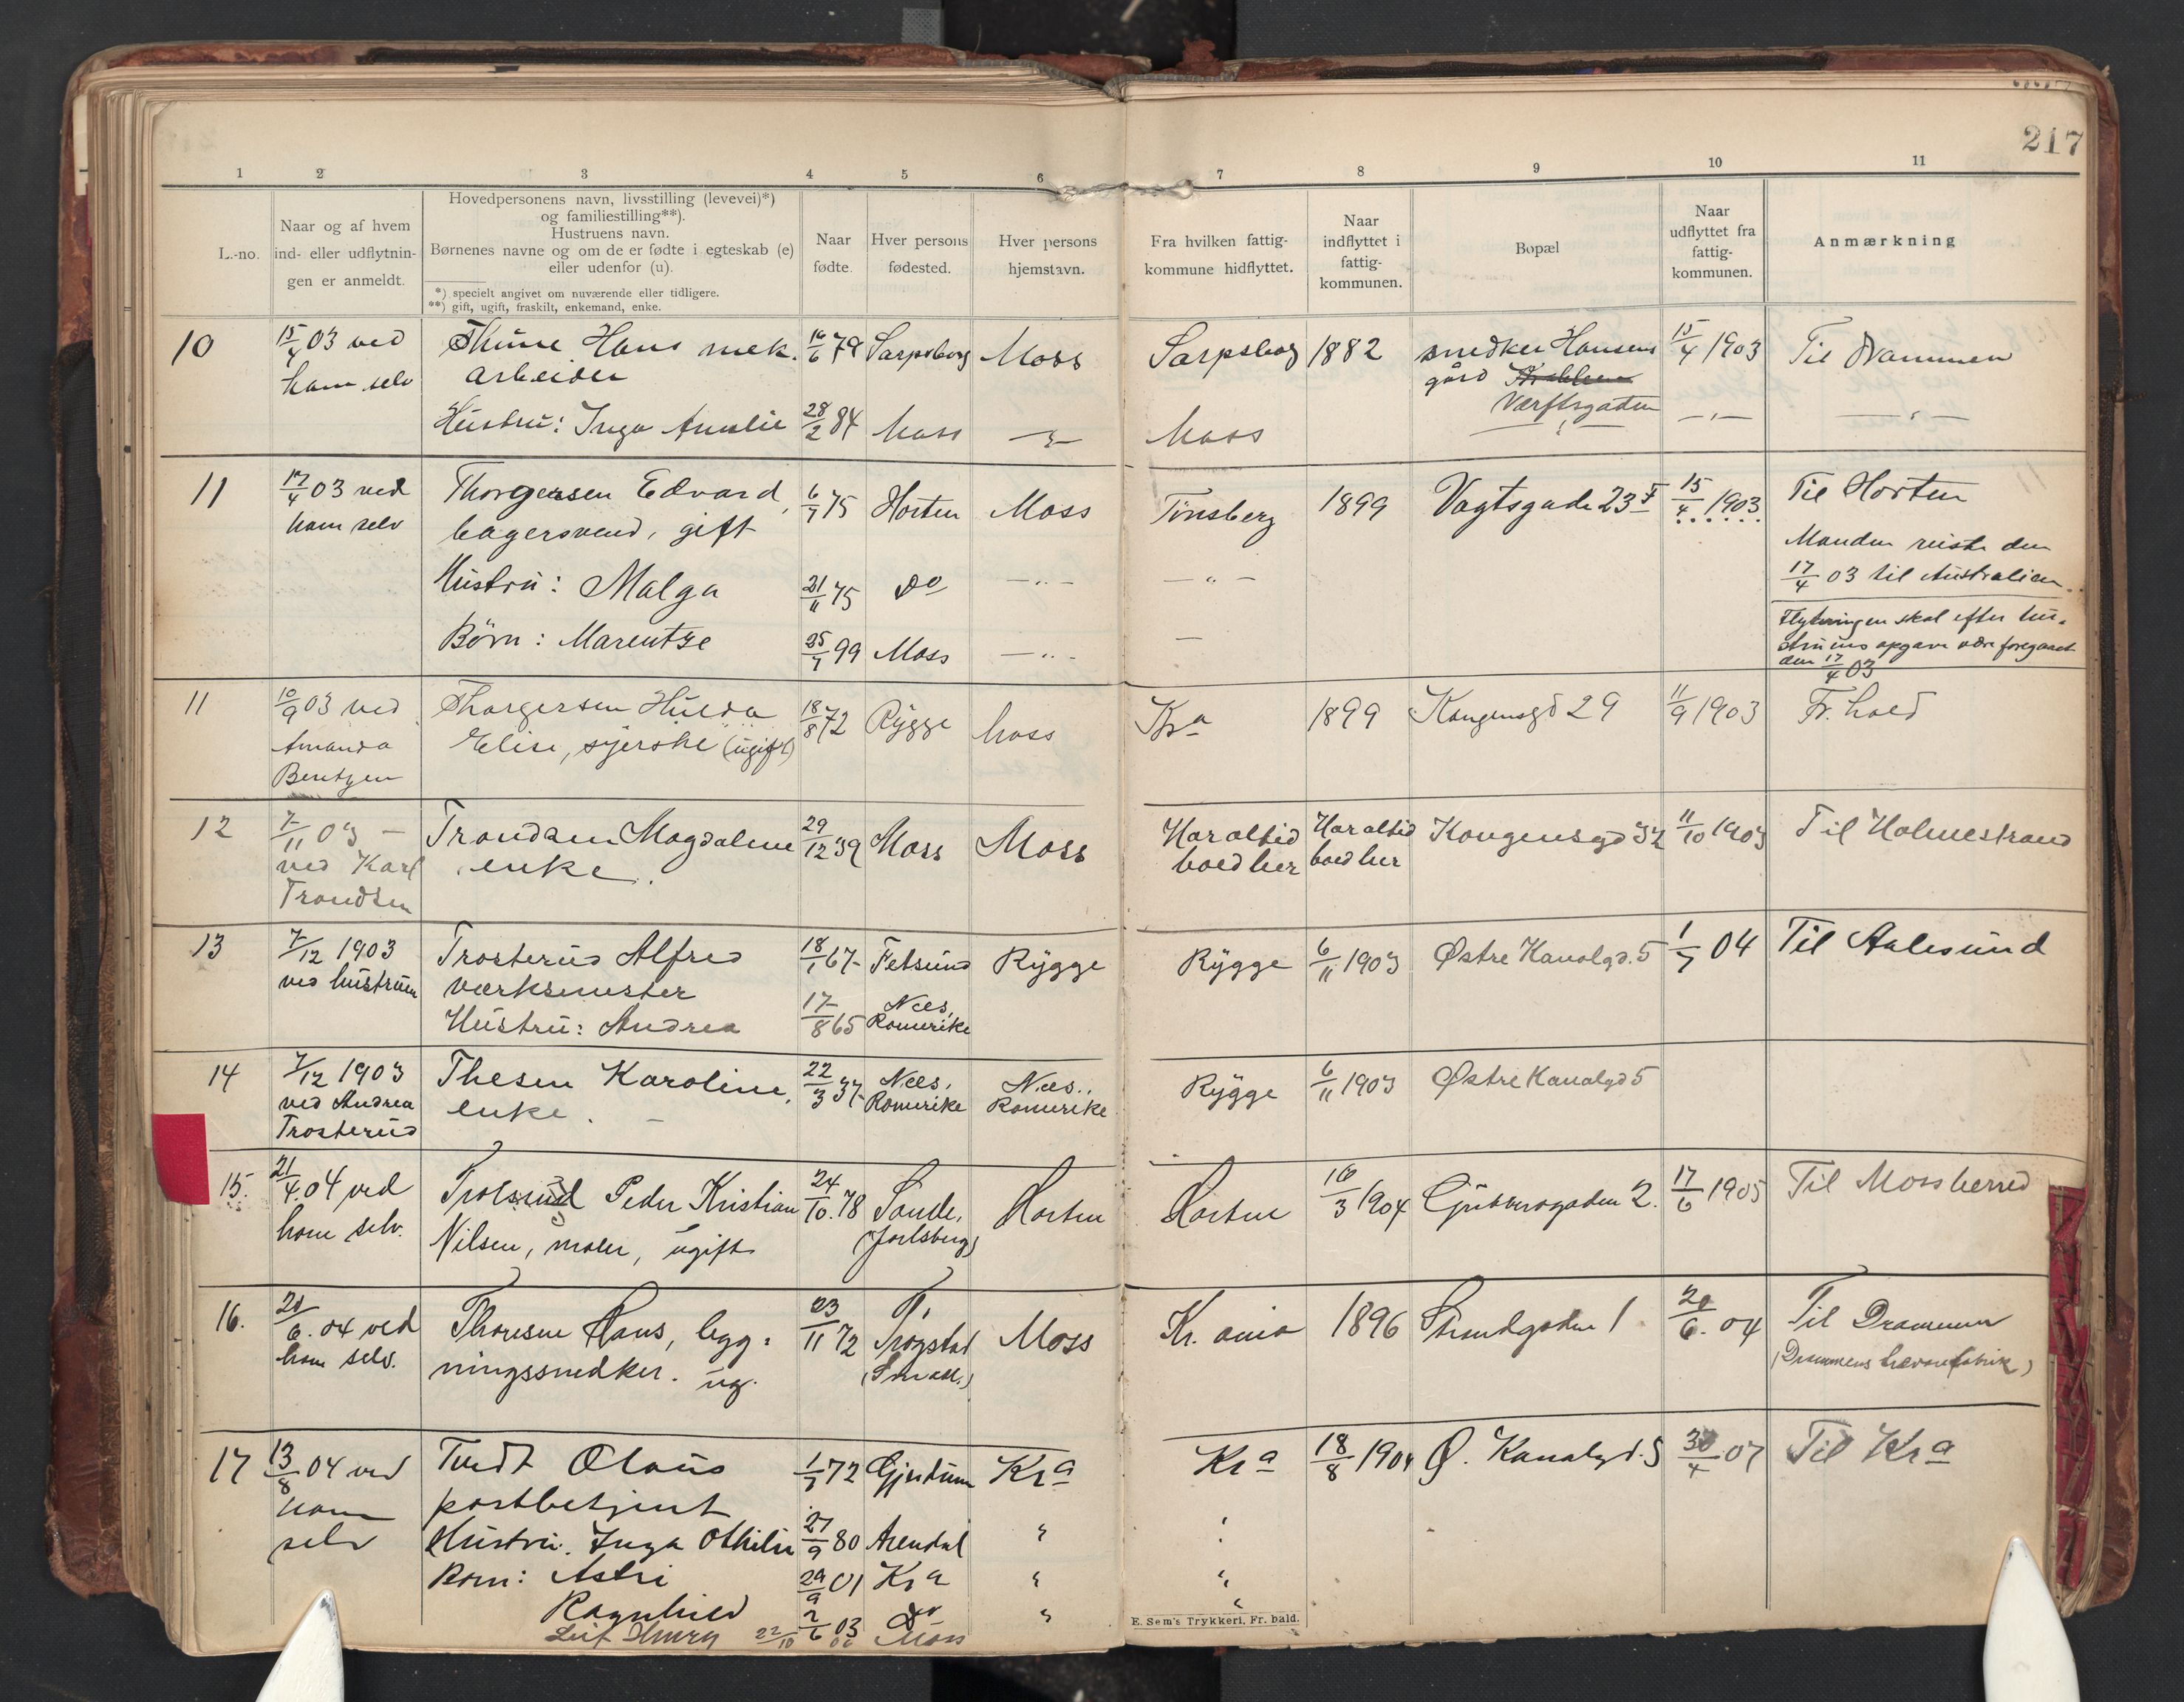 217
1 2 3 4 5 6 7 8 9 10 11
L.-no.
Naar og af hvem
ind- eller udflytnin-
gen er anmeldt.
Hovedpersonens navn, livsstilling (levevei)*)
og familiestilling**).
Hustruens navn.
Børnenes navne og om de er fødte i egteskab (e)
eller udenfor (u).
*) specielt angivet om nuværende eller tidligere.
**) gift, ugift, fraskilt, enkemand, enke.
Naar
fødte.
Hver persons
fødested.
Hver persons
hjemstavn.
Fra hvilken fattig-
kommune hidflyttet.
Naar
indflyttet i
fattig-
kommunen.
Bopæl
Naar
udflyttet fra
fattig-
kommunen.
Anmærkning
10 15/4 03 ved Thune Hans mek. 16/6 79 Sarpsborg Moss Sarpsborg 1882 snedker Hansens 15/4 1903 Til Drammen
ham selv arbeider gård
Værftsgaden
Hustru: Inga Amalie 28/2 84 Moss —"— Moss —"— —"—
11 17/4 03 ved Thorgersen Edvard, 6/7 75 Horten Moss Tønsberg 1899 Vogtsgade 23 15/4 1903 Til Horten
ham selv bagersvend, gift
Manden reiste den
Hustru: Malga 21/11 75 do —"— —"— 17/4 03 til Australien.
Børn: Marentze 25/7 99 Moss —"— —
Flytningen skal efter hu-
struens opgave være foregaaet
den 17/4 03
11 10/9 03 ved Thorgersen Hulda 18/8 72 Rygge Moss Kra 1899 Kongensgd 29 11/9 1903 Fr.hald
Amanda Elise, syerske (ugift)
Bentzen
12 7/11 03 — Trondsen Magdalene 29/12 39 Moss Moss Har altid Har altid Kongensgd 32 11/10 1903 Til Holmestrand
ved Karl enke. boed her boed her
Trondsen
13 7/12 1903 Trosterud Alfred 18/1 67 Fetsund Rygge Rygge 6/11 1903 Østre Kanalgd. 5 1/7 04 Til Aalesund
ved hustruen værksmester
Hustru: Andrea 17/8 65 Næs, Romerike
14 7/12 1903 Thesen Karoline, 22/3 37 Næs, Næs, Rygge 6/11 1903 Østre Kanalgd 5
ved Andrea enke. — Romerike Romerike
Trosterud
15. 21/4. 04 ved Peder Kristian 24/10. 78 Sande, Horten Horten 16/3 1904 Gudesgaden 2. 17/6 1905 Til Mossherred
ham selv. Nilsen, maler, ugift (Jarlsberg)
16. 20/6. 04 ved Thoresen Hans, byg- 23/11 72 Trøgstad Moss Kr.ania 1896 Strandgaden 1 20/6. 04 Til Drammen
ham selv. ningssnedker. ug. (Smaal.) (Drammens trævarefabrik)
17 13/8 04 ved Tvedt Olaus 1/7 72 Gjerdrum Kra Kra 18/8 1904 Ø. Kanalgd. 5 30/4 07 Til Kra
ham postbetjent
selv Hustru. Inga Othilie 27/9 80 Arendal " "
Børn: Astri 29/9 01 Kra " "
Ragnhild 2/6 03 do " "
Leif Henry 22/10 06 Moss
E. Sem's Trykkeri, Fr. hald.